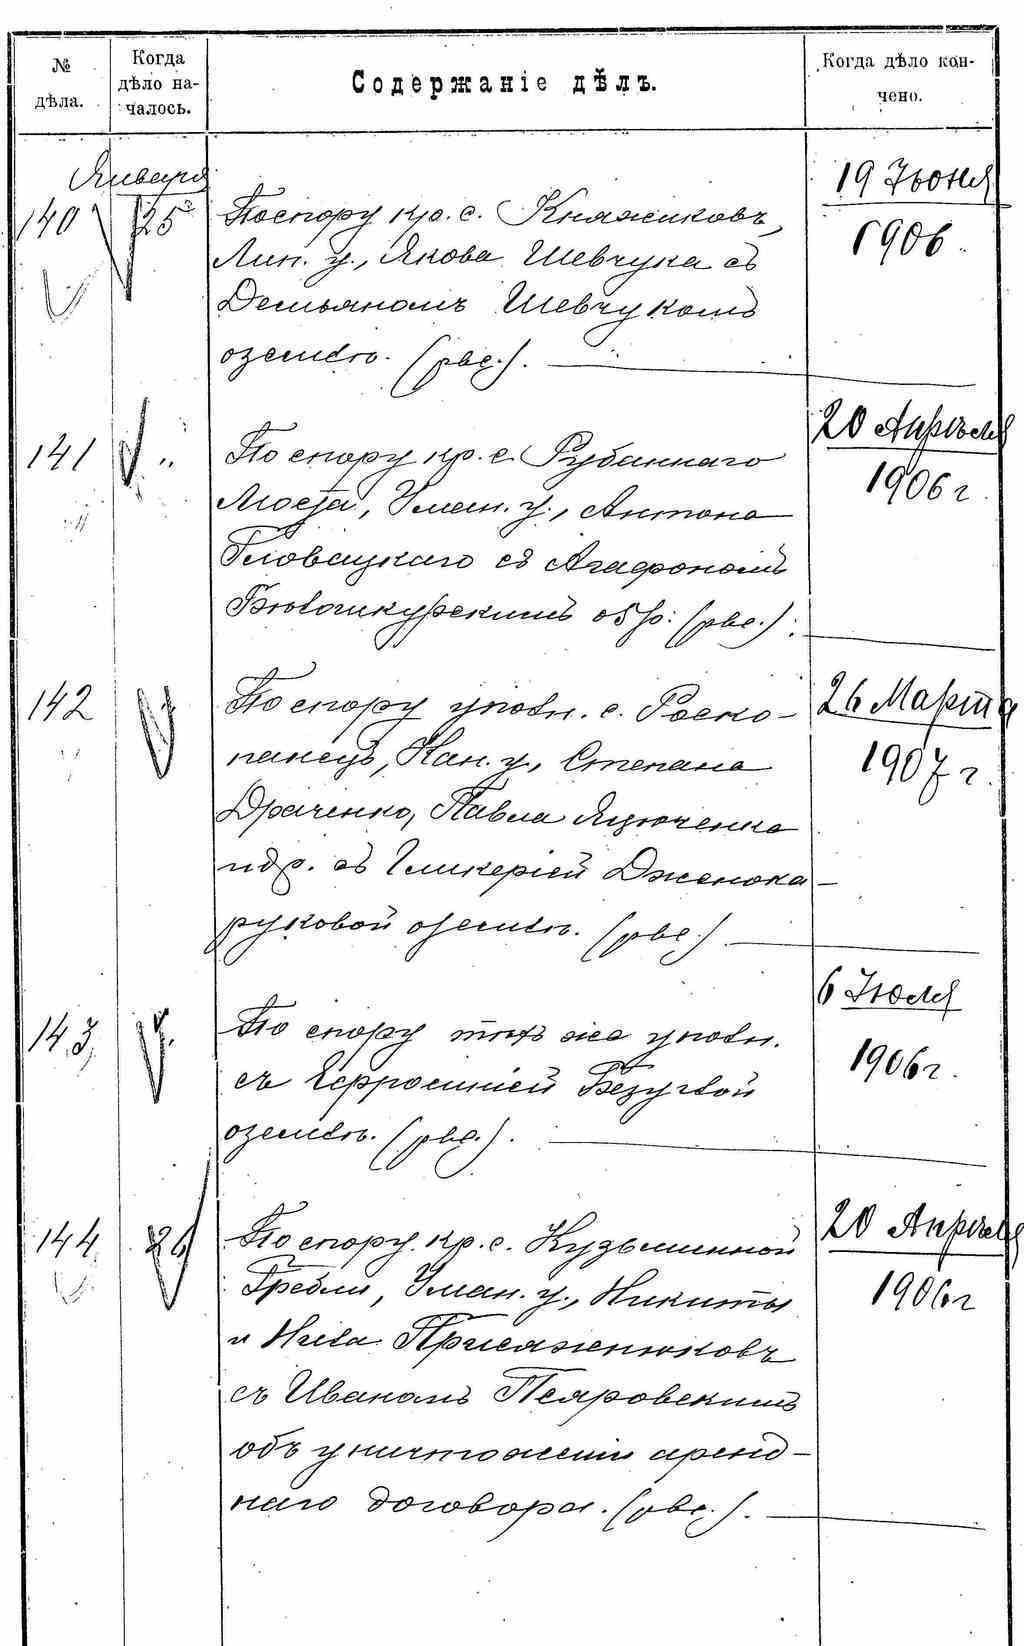 № дѣла.
Когда дѣло началось.
Содержаніе дѣлъ.
Когда дѣло кончено.
Января
140
25
По спору кр. с. Княжиковъ,
Лип. у., Якова Шевчука съ
Демьяномъ Шевчукомъ
о землѣ.
19 Іюня
1906
141
"
По спору кр. с. Рубаннаго
Моста, Уман. у., Антона
Гловацкаго съ Агафономъ
20 Апрѣля
1906 г
142
По спору уповн. с. Роско-
панецъ, Кан. у., Степана
Драченко, Павла Яцюченка
и др. съ Гликеріей Дженжа-
руковой о землѣ.
26 Марта
1907 г.
143
По спору тѣхъ же уповн.
съ
о землѣ.
6 Іюля
1906 г.
144
26
По спору кр. с. Кузьминной
Гребли, Уман. у., Никиты
и Присяжнюковъ
съ Иваномъ
объ уничтоженіи аренд-
наго договора.
20 Апрѣля
1906 г